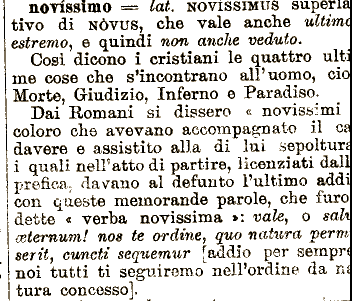 novíssimo = lat. NOVISSIMUS superla
tivo di NÒVUS, che vale anche ultimo
estremo, e quindi non anche veduto.
Cosi dicono i cristiani le quattro ulti
me cose che s'incontrano all'uomo, cio
Morte, Giudizio, Inferno e Paradiso.
Dai Romani si dissero « novissimi
coloro che avevano accompagnato il ca
davere e assistito alla di lui sepoltura
i quali nell'atto di partire, licenziati dall
prefica, davano al defunto l'ultimo addi
con queste memorande parole, che furo
dette « verba novissima »: vale, o salv
æternum! nos te ordine, quo natura perm
serit, cuncti sequemur [addio per sempre
noi tutti ti seguiremo nell'ordine da na
tura concesso].